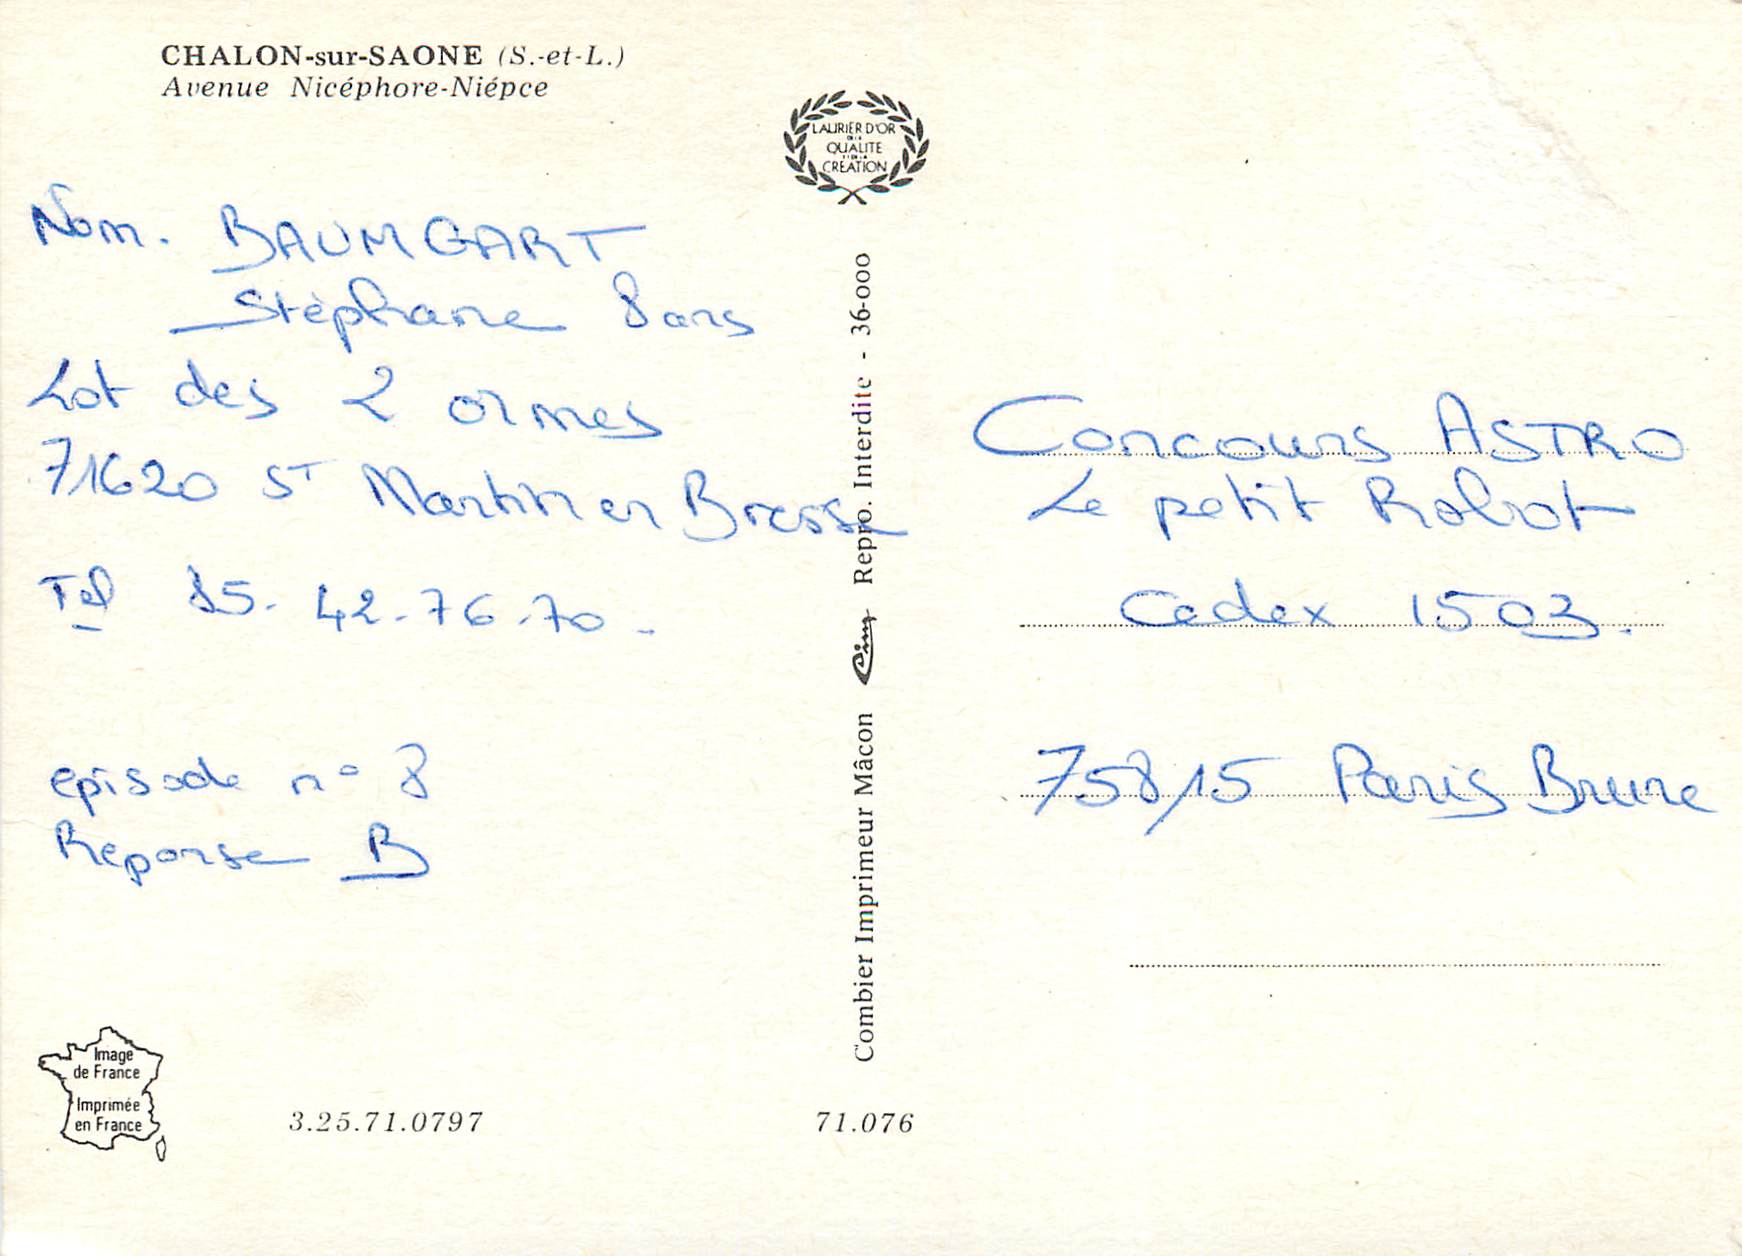 CHALON-sur-SAONE (S.-et-L.)
Avenue Nicéphore-Niépce
LAURIER D'OR
DE LA
QUALITE
ET DE LA
CREATION
Nom. BAUMGART
Stéphane 8 ans
Lot des 2 ormes
71620 St Martin en Bresse
Tel 85. 42-76-70-
episode n° 8
Reponse B
Combier Imprimeur Mâcon Cim Repro. Interdite - 36-000
Concours ASTRO
Le petit Robot
Cedex 1503.
758/15 Paris Brune
Image
de France
Imprimée
en France
3.25.71.0797
71.076